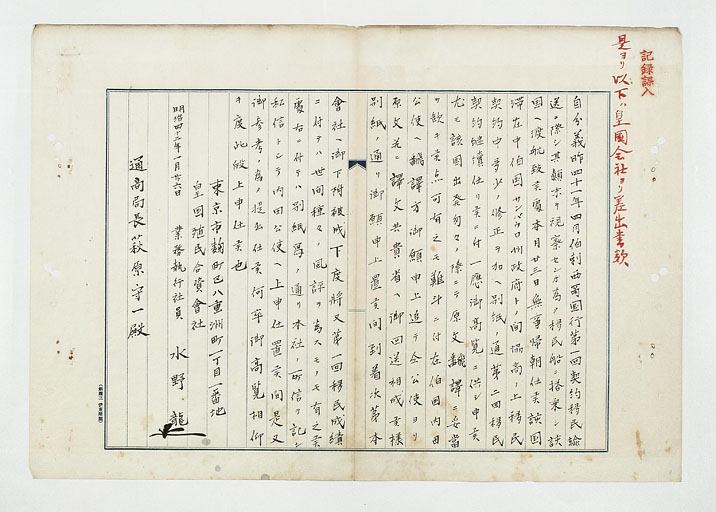 記録課入
是ヨリ以下ハ皇國会社ヨリ差出書類
自分義昨四十一年四月伯剌西爾國行第一回契約移民輸
送ノ際シ其顛末ヲ視察センガ為メ移民船ニ搭乗シ該
国ヘ渡航致シ本月廿三日無事帰朝仕候該国
滞在中伯国サンパウロ州政府ト間協商ノ上移民
契約中多少ノ修正ヲ加ヘ別紙ノ通第二回移民
契約継續仕リ候ニ付一應御高覧ニ供シ申候
尤モ該国出発匆々ノ際ニテ原文飜譯ニ妥當
ヲ欠キ候点可有之モ難斗ニ付在伯国内田
公使ヘ飜譯方御願申上追テ仝公使ヨリ
原文並ニ譯文共貴省ヘ御回送相成候様
別紙ノ通リ御願申上置候間到着次第本
會社ヘ御下附被成下度将又第一回移民成績
ニ付テハ世間種々ノ風評ヲ為スモノモ有之候
處右ニ付テハ別紙写ノ通リ本社ノ所信ヲ記シ
私信トシテ内田公使ヘ上申仕置候間是又
御参考ノ為メ提出仕候何卒御高覧相仰
キ度此段上申仕候也
東京市麹町区八重洲町一丁目一番地
皇国殖民合資會社
明治四十二年一月廿六日
業務執行社員 水野龍
通商局長萩原守一殿